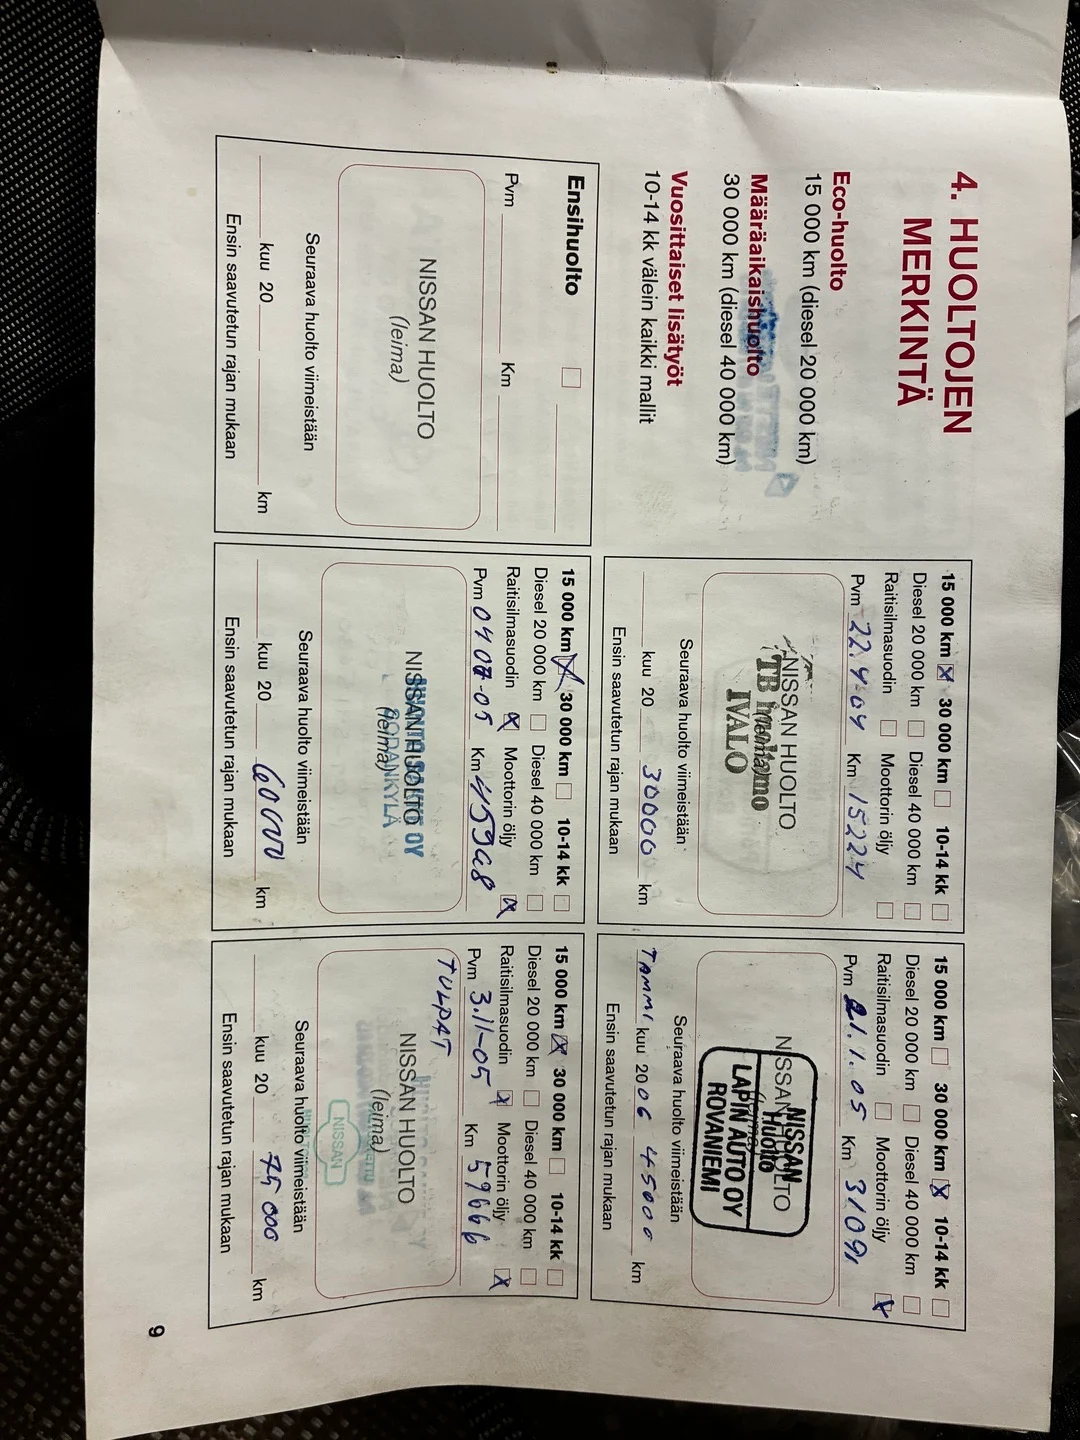 4. HUOLTOJEN
MERKINTÄ
Eco-huolto
15 000 km (diesel 20 000 km)
Määräaikaishuolto
30 000 km (diesel 40 000 km)
Vuosittaiset lisätyöt
10-14 kk välein kaikki mallit
15 000 km ☒ 30 000 km ☐ 10-14 kk ☐
Diesel 20 000 km ☐ Diesel 40 000 km ☐
Raitisilmasuodin ☐ Moottorin öljy ☐
Pvm 22.4.04 Km 15224
NISSAN HUOLTO
TB
IVALO
Seuraava huolto viimeistään
kuu 20 30000 km
Ensin saavutetun rajan mukaan
15 000 km ☐ 30 000 km ☒ 10-14 kk ☐
Diesel 20 000 km ☐ Diesel 40 000 km ☐
Raitisilmasuodin ☐ Moottorin öljy ☒
Pvm 21.1.05 Km 31091
NISSAN HUOLTO
NISSAN
Huolto
LAPIN AUTO OY
ROVANIEMI
Seuraava huolto viimeistään
TAMMI kuu 2006 45000 km
Ensin saavutetun rajan mukaan
Ensihuolto ☐
Pvm Km
NISSAN HUOLTO
(leima)
Seuraava huolto viimeistään
kuu 20 km
Ensin saavutetun rajan mukaan
15 000 km ☒ 30 000 km ☐ 10-14 kk ☐
Diesel 20 000 km ☐ Diesel 40 000 km ☐
Raitisilmasuodin ☒ Moottorin öljy ☒
Pvm 04 07-05 Km 45908
NISSAN HUOLTO OY
(leima)
SODANKYLÄ
Seuraava huolto viimeistään
kuu 20 60000 km
Ensin saavutetun rajan mukaan
15 000 km ☒ 30 000 km ☐ 10-14 kk ☐
Diesel 20 000 km ☐ Diesel 40 000 km ☐
Raitisilmasuodin ☒ Moottorin öljy ☒
Pvm 3.11-05 Km 59666
TULPAT
NISSAN HUOLTO
(leima)
NISSAN
Seuraava huolto viimeistään
kuu 20 75000 km
Ensin saavutetun rajan mukaan
9